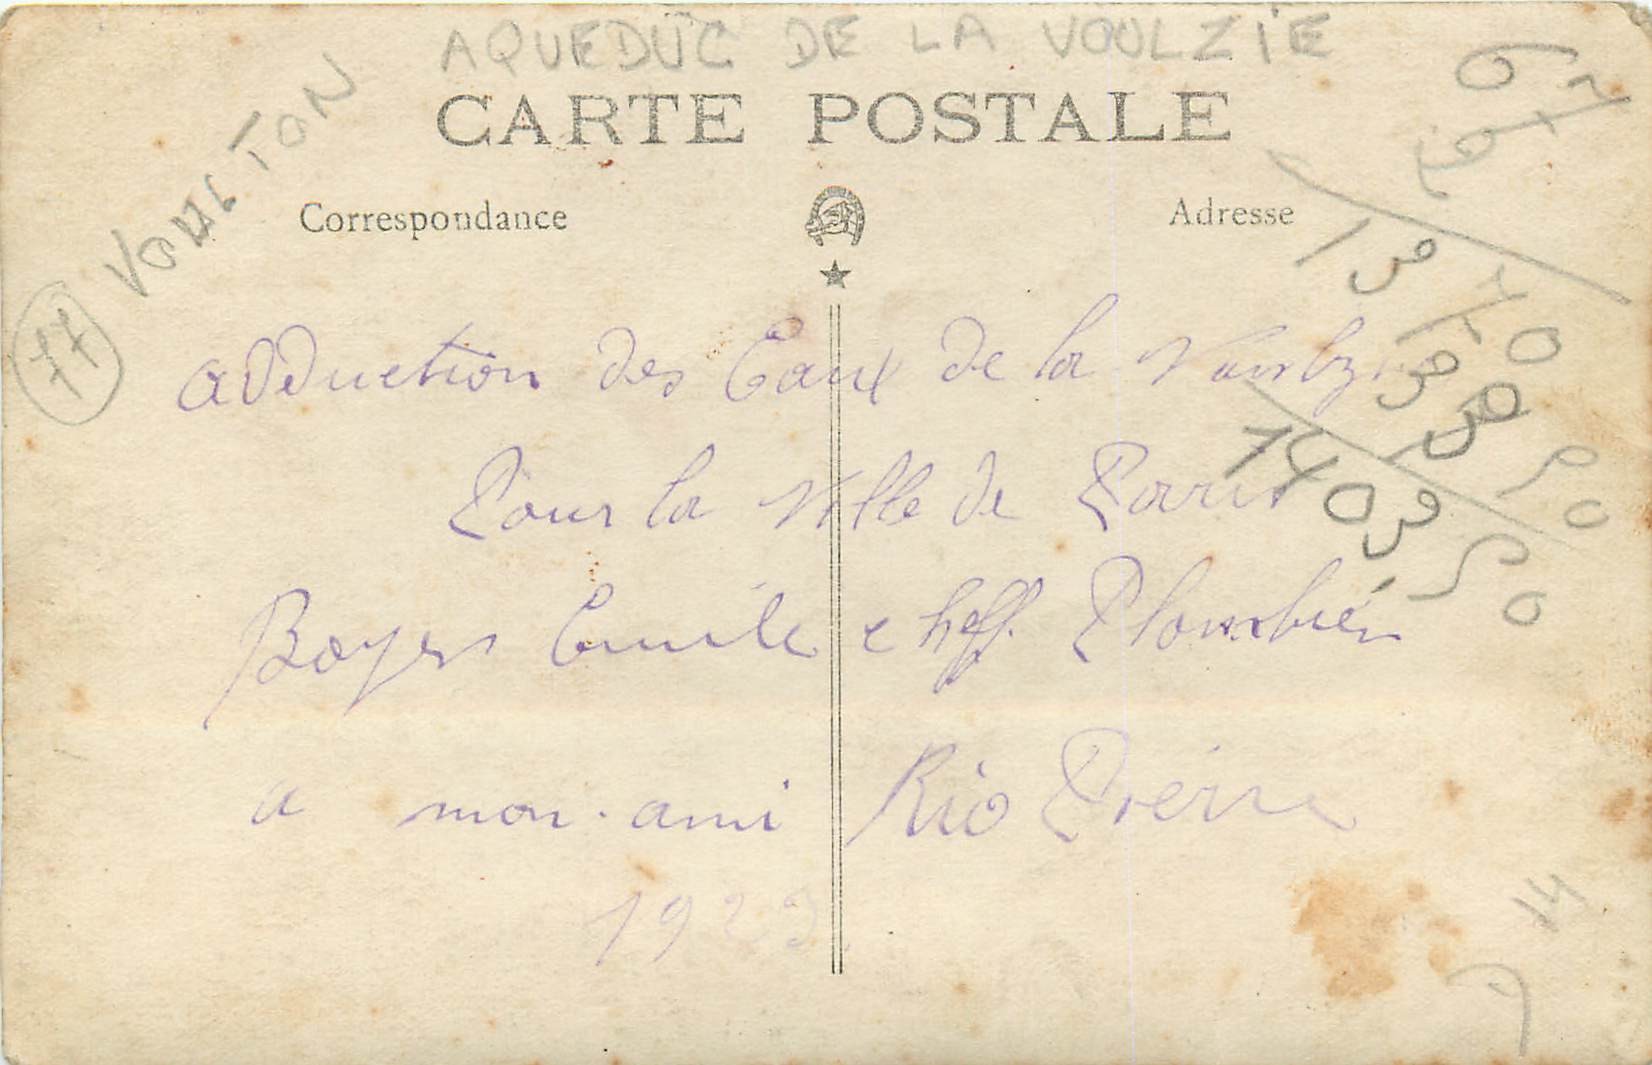 AQUEDUC DE LA VOULZIE
VOULTON
77
CARTE POSTALE
Correspondance
Adresse
adduction des Eaux de la
Pour la Ville de Paris
Boyer Emile cheff. Plombier
a mon ami Rio Pierre
1923
67
13
1403,50
14